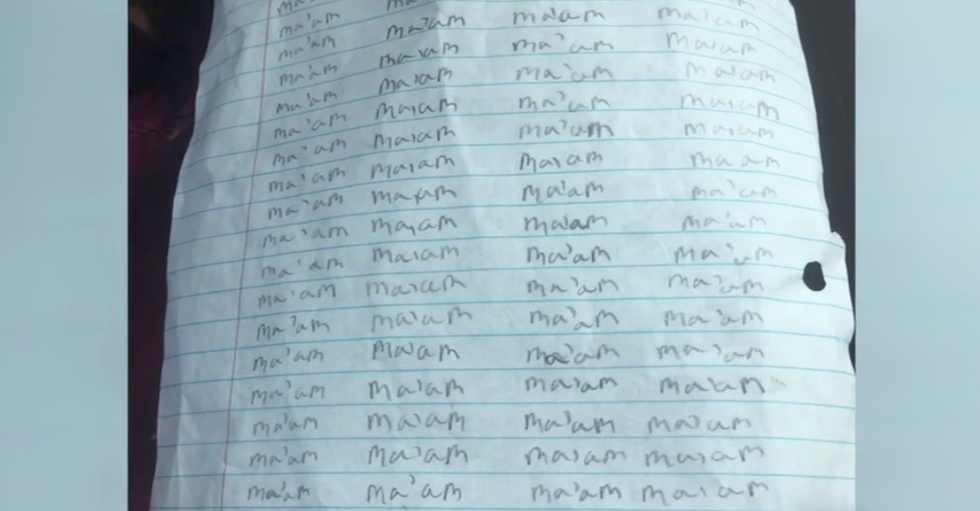 ma'am ma'am ma'am ma'am
ma'am ma'am ma'am ma'am
ma'am ma'am ma'am ma'am
ma'am ma'am ma'am ma'am
ma'am ma'am ma'am ma'am
ma'am ma'am ma'am ma'am
ma'am ma'am ma'am ma am
ma'am ma'am ma'am ma'am
ma'am ma'am ma'am ma'am
ma'am ma'am ma'am ma'am
ma'am ma'am ma'am ma'am
ma'am ma'am ma'am ma'am
ma'am ma'am ma'am ma'am
ma'am ma'am ma'am ma'am
ma'am ma'am ma'am ma'am
ma'am ma'am ma'am ma'am
ma'am ma'am ma'am ma'am